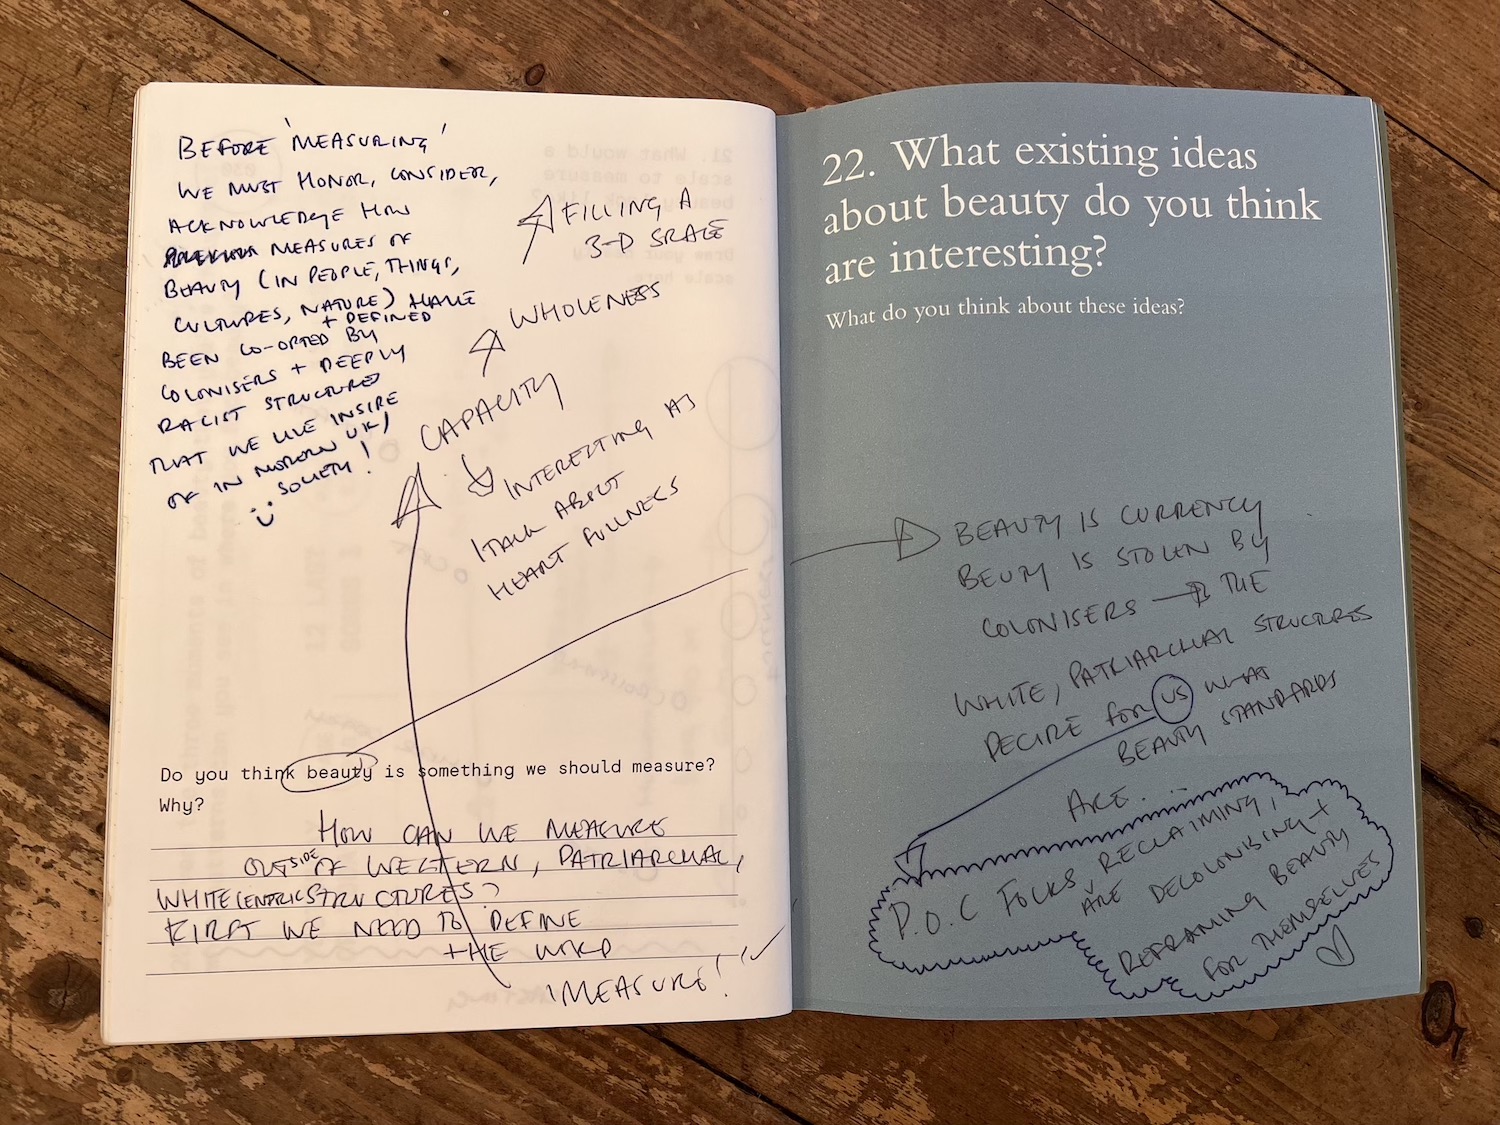 BEFORE 'MEASURING'
WE MUST HONOR, CONSIDER,
ACKNOWLEDGE HOW
MEASURES OF
BEAUTY (IN PEOPLE, THINGS,
CULTURES, NATURE) HAVE
+ DEFINED
BEEN CO-OPTED BY
COLONISERS + DEEPLY
RACIST STRUCTURED
THAT WE LIVE INSIDE
OF IN MODERN UK/
SOCIETY!
FILLING A
3-D SPACE
WHOLENESS
CAPACITY
INTERESTING AS
I TALK ABOUT
HEART FULLNESS
Do you think beauty is something we should measure?
Why?
HOW CAN WE MEASURE
OUTSIDE OF WESTERN, PATRIARCHAL,
WHITE CENTRIC STRUCTURES?
FIRST WE NEED TO DEFINE
THE WORD
'MEASURE!'
22. What existing ideas
about beauty do you think
are interesting?
What do you think about these ideas?
BEAUTY IS CURRENCY
BEUTY IS STOLEN BY
COLONISERS → THE
WHITE, PATRIARCHAL STRUCTURES
DECIDE FOR US WHAT
BEAUTY STANDARDS
ARE...
P.O.C FOLKS ARE RECLAIMING,
DECOLONISING +
REFRAMING BEAUTY
FOR THEMSELVES